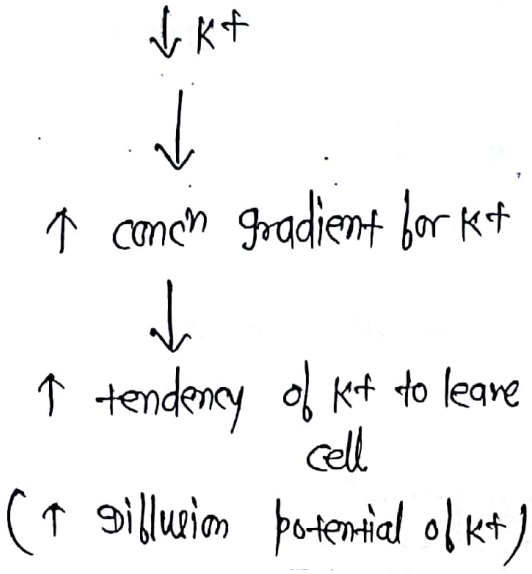 ↓ K+
↓
↑ concn gradient for K+
↓
↑ tendency of K+ to leave
cell
(↑ Diffusion potential of K+)